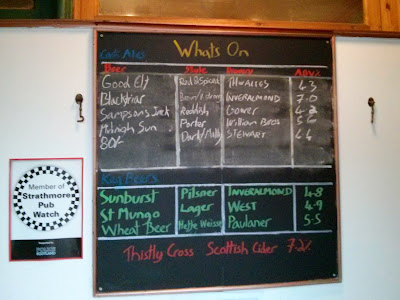 Whats On
Cask Ales
Beer Style Brewery ABV%
Good Elf Red & Spiced Thwaites 4.3
Blackfriar Inveralmond 7.0
Sampsons Jack Reddish Gower 4.8
Midnigh Sun Porter William Bros 5.6
80/- Dark/Malty Stewart 4.4
Keg Beers
Sunburst Pilsner Inveralmond 4.8
St Mungo Lager West 4.9
Wheat Beer Hefe Weisse Paulaner 5.5
Thistly Cross Scottish Cider 7.2%
Member of
Strathmore
Pub
Watch